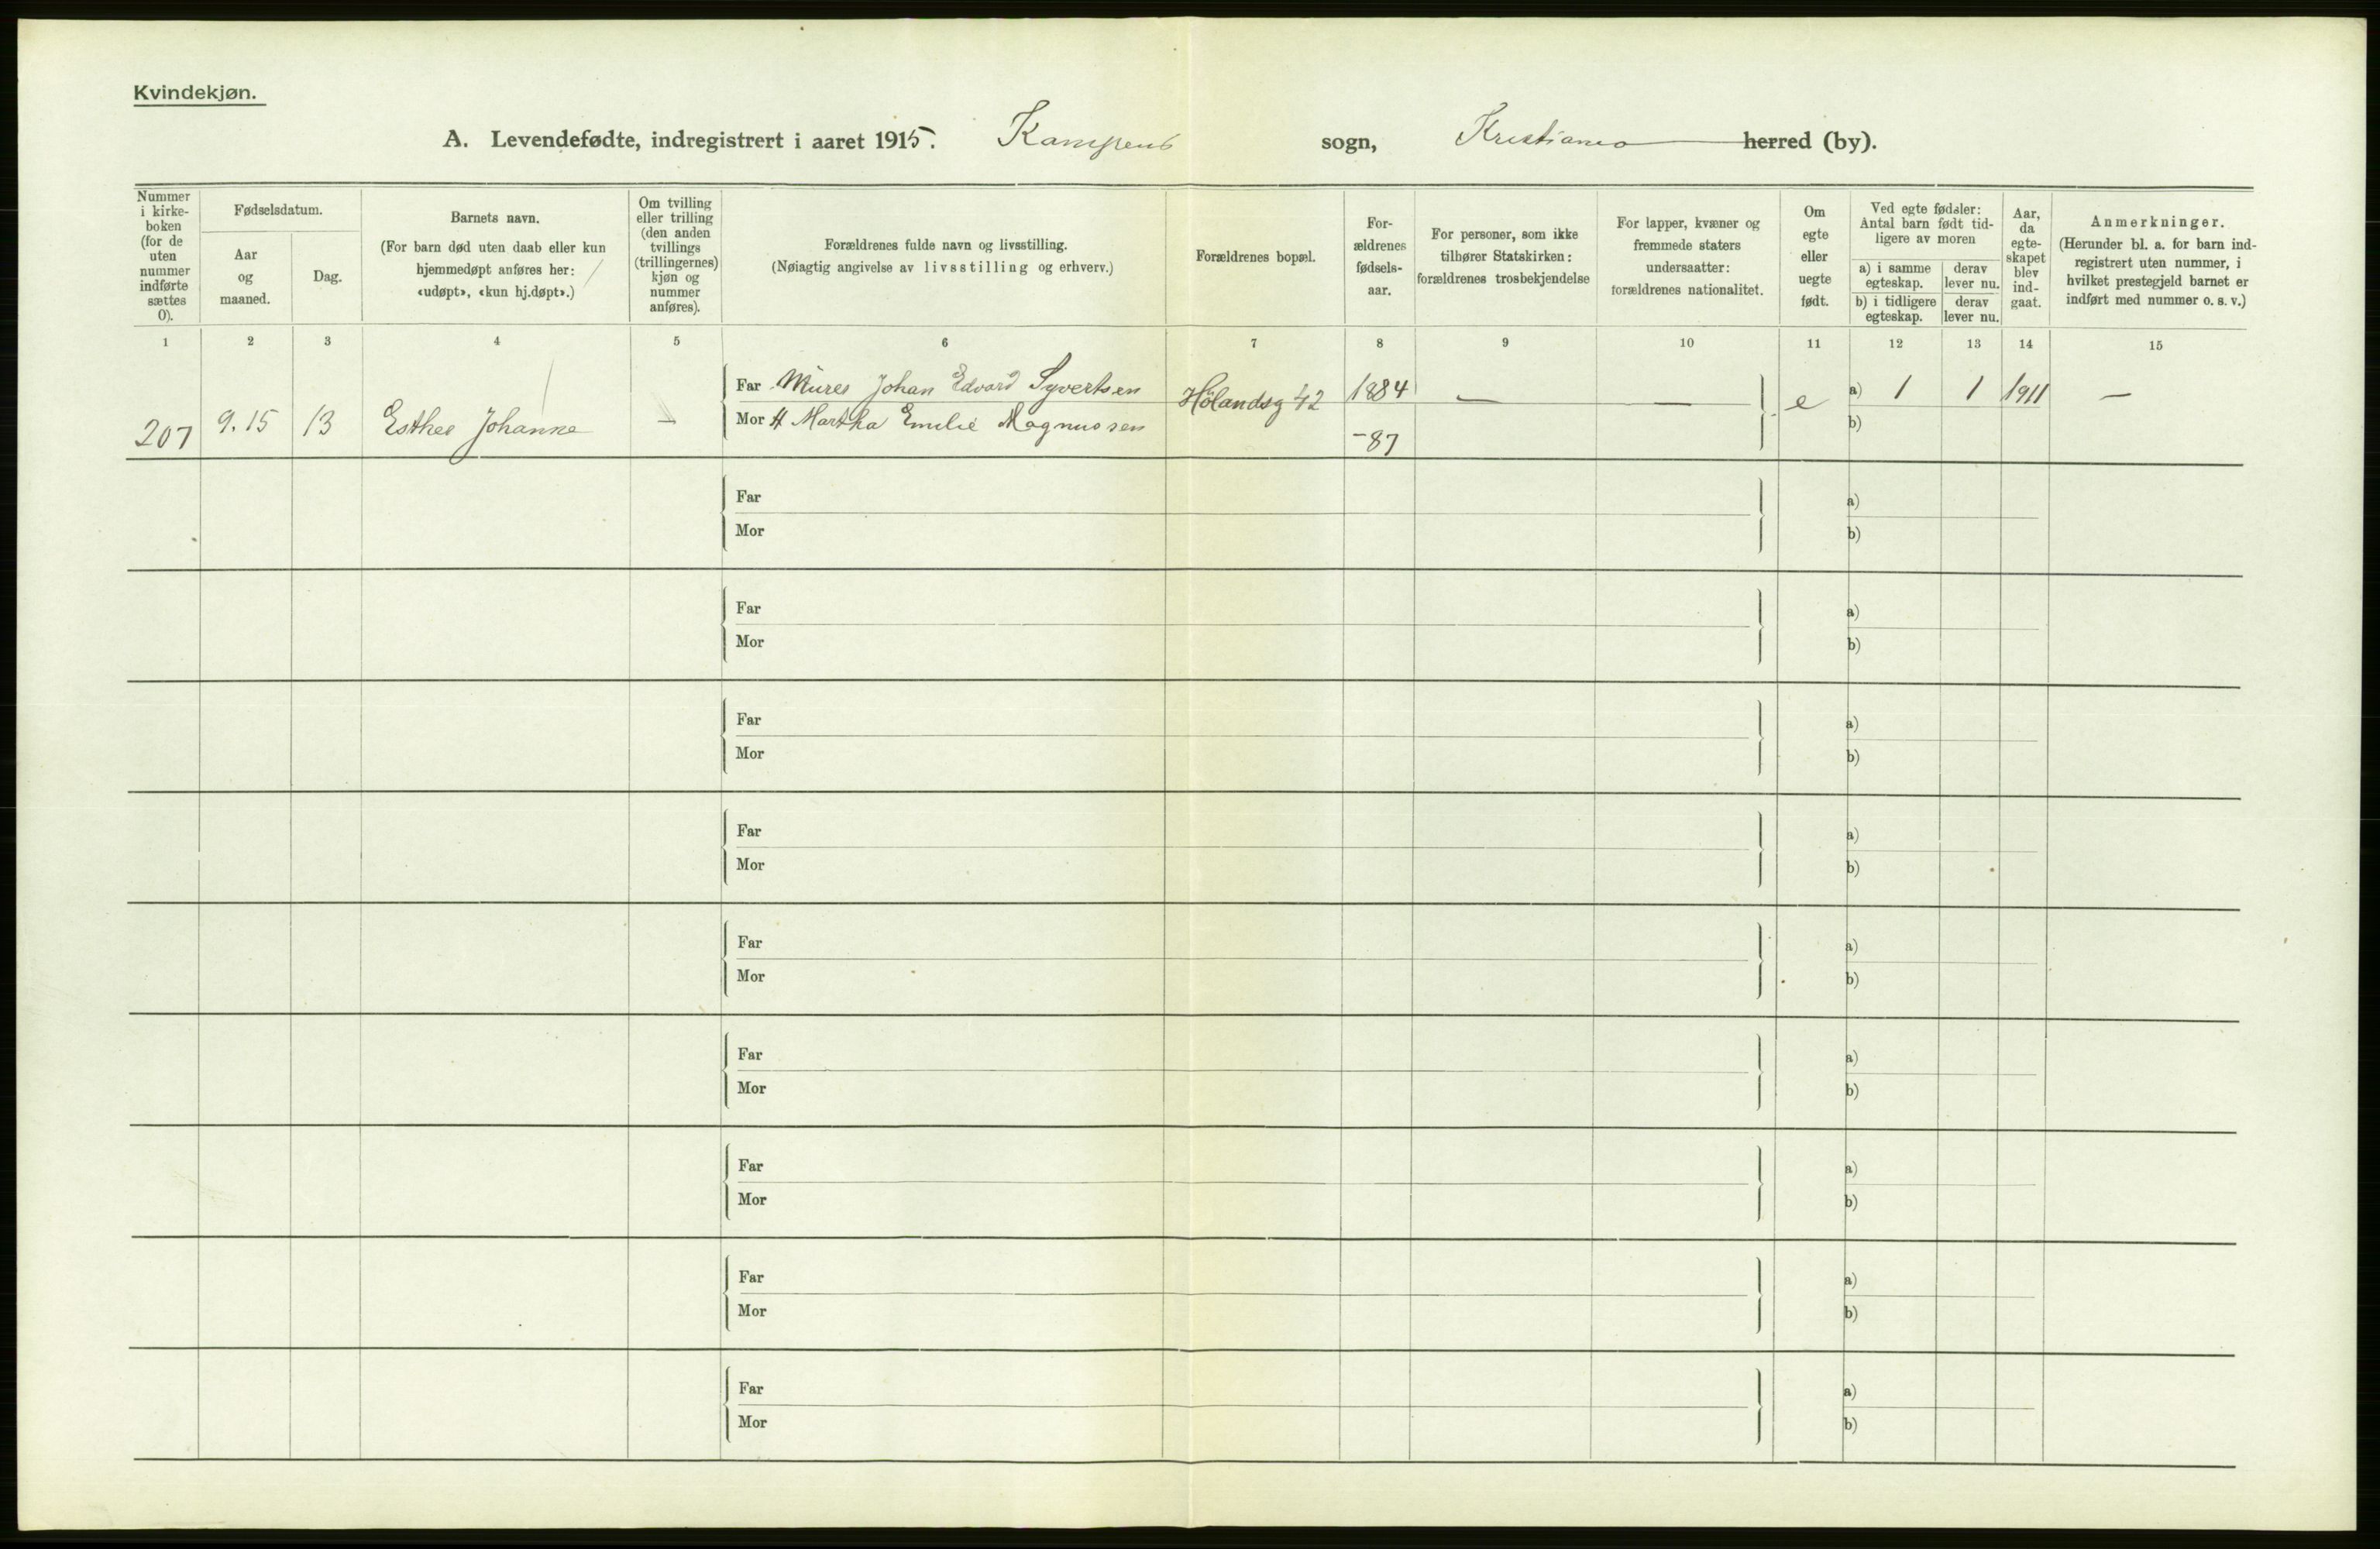 Kvindekjøn.
A. Levendefødte, indregistrert i aaret 1915. Kampens sogn, Kristiania herred (by).
Nummer i kirke-
boken
(for de
uten
nummer
indførte
sættes
0).
Fødselsdatum.
Aar
og
maaned.
Dag.
Barnets navn.
(For barn død uten daab eller kun
hjemmedøpt anføres her:
«udøpt», «kun hj.døpt».)
Om tvilling
eller trilling
(den anden
tvillings
(trillingernes)
kjøn og
nummer
anføres).
Forældrenes fulde navn og livsstilling.
(Nøiagtig angivelse av livsstilling og erhverv.)
Forældrenes bopæl.
For-
ældrenes
fødsels-
aar.
For personer, som ikke
tilhører Statskirken:
forældrenes trosbekjendelse
For lapper, kvæner og
fremmede staters
undersaatter:
forældrenes nationalitet.
Om
egte
eller
uegte
født.
Ved egte fødsler:
Antal barn født tid-
ligere av moren
a) i samme
egteskap.
derav
lever nu.
b) i tidligere
egteskap.
derav
lever nu.
Aar,
da
egte-
skapet
blev
ind-
gaat.
Anmerkninger.
(Herunder bl. a. for barn ind-
registrert uten nummer, i
hvilket prestegjeld barnet er
indført med nummer o. s. v.)
1 2 3 4 5 6 7 8 9 10 11 12 13 14 15
Far Murer Johan Edvard Syvertsen Hölandsg 42 1884 — — e a) 1 1 1911 —
207 9.15 13 Esther Johanne — Mor H Martha Emilie Magnussen -87 b)
Far a)
Mor b)
Far a)
Mor b)
Far a)
Mor b)
Far a)
Mor b)
Far a)
Mor b)
Far a)
Mor b)
Far a)
Mor b)
Far a)
Mor b)
Far a)
Mor b)